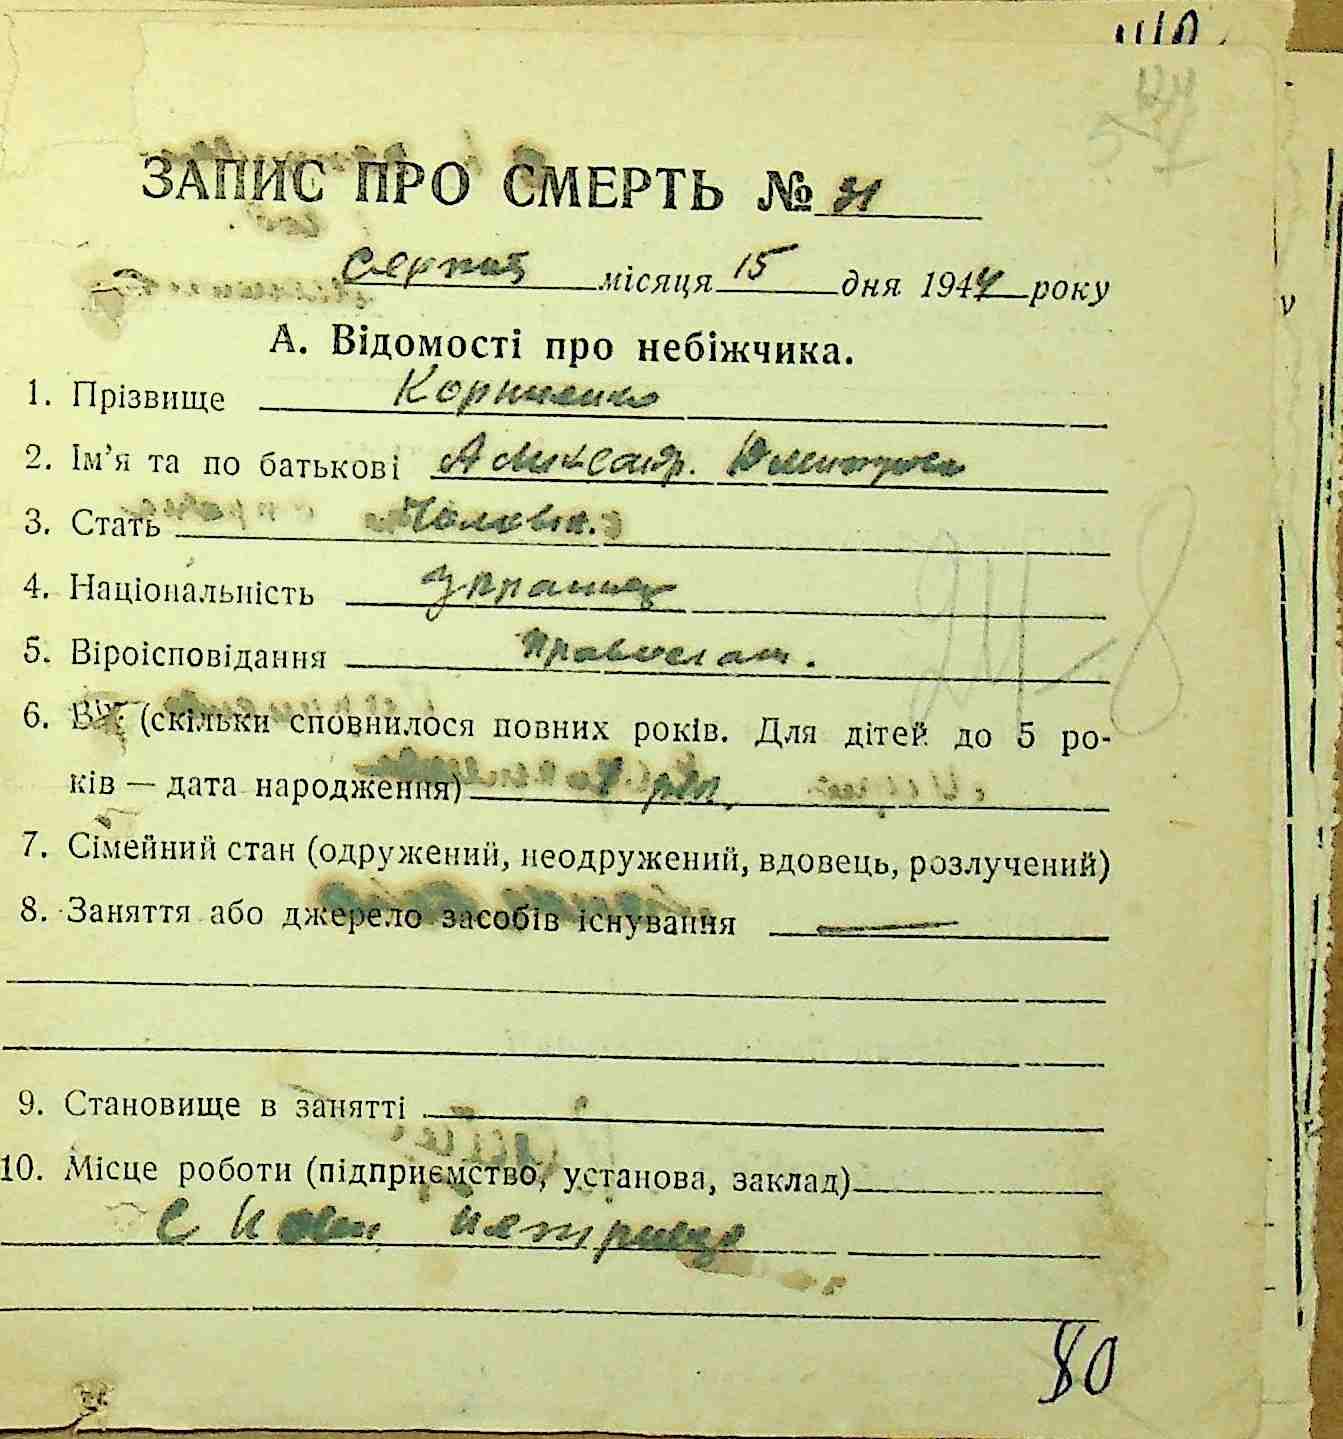 ЗАПИС ПРО СМЕРТЬ № 31
Серпня місяця 15 дня 1944 року
А. Відомості про небіжчика.
1. Прізвище Корниенко
2. Ім'я та по батькові Александр. Дмитров
3. Стать Чоловіч.
4. Національність Украинец
5. Віроісповідання Православ.
6. Вік (скільки сповнилося повних років. Для дітей до 5 ро-
ків — дата народження)
7. Сімейний стан (одружений, неодружений, вдовець, розлучений)
8. Заняття або джерело засобів існування —
9. Становище в занятті
10. Місце роботи (підприємство, установа, заклад)
С Нови Петривце
24-8
80